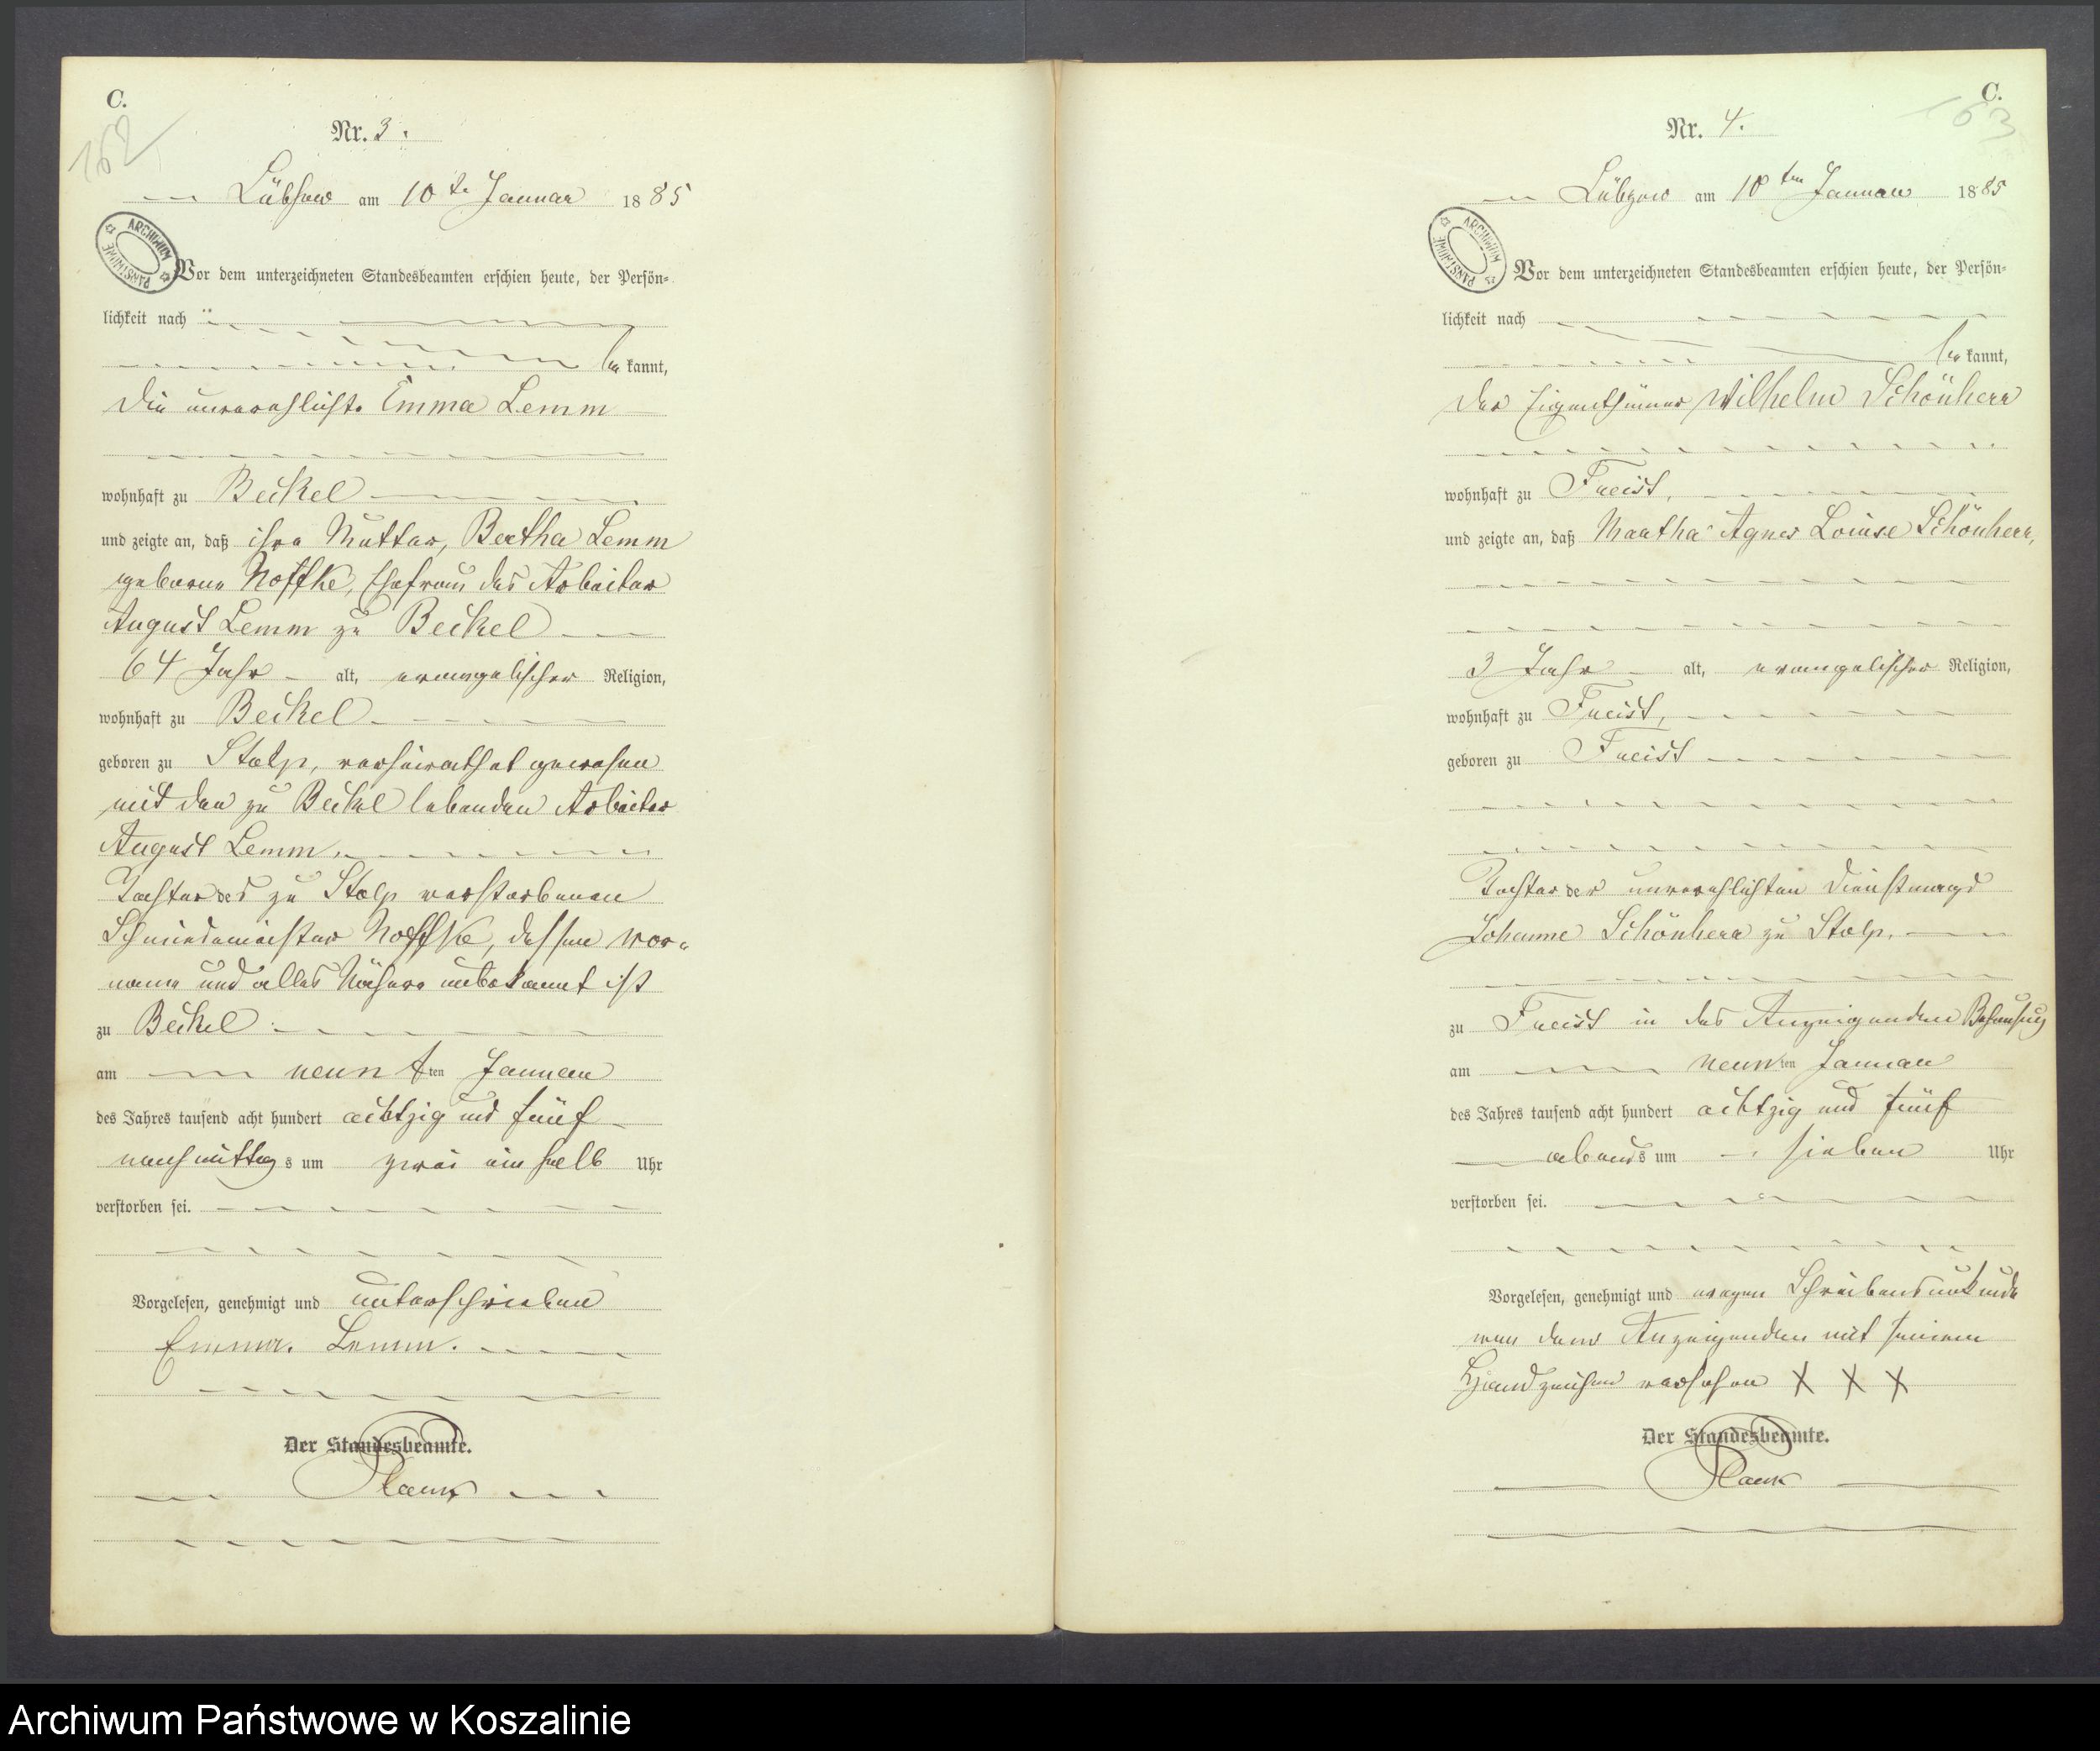 C.
162
Nr. 3.
Lübzow am 10t. Januar 1885
ARCHIWUM PAŃSTWOWE
Vor dem unterzeichneten Standesbeamten erschien heute, der Persön-
lichkeit nach
be kannt,
die unverehlichte Emma Lemm
wohnhaft zu Beckel
und zeigte an, daß ihre Mutter, Bertha Lemm
geborne Noffke, Ehefrau des Arbeiter
August Lemm zu Beckel
64 Jahr alt, evangelischer Religion,
wohnhaft zu Beckel
geboren zu Stolp, verheirathet gewesen
mit den zu Beckel lebenden Arbeiter
August Lemm.
Tochter des zu Stolp verstorbenen
Schmiedemeister Noffke, dessen Vor-
name und alles Nähere unbekannt ist
zu Beckel
am neun ten Januar
des Jahres tausend acht hundert achtzig und fünf
nachmittag s um zwei ein halb Uhr
verstorben sei.
Vorgelesen, genehmigt und unterschrieben
Emma Lemm.
Der Standesbeamte.
Planck
C.
163
Nr. 4.
Lübzow am 10ten Januar 1885
ARCHIWUM PAŃSTWOWE
Vor dem unterzeichneten Standesbeamten erschien heute, der Persön-
lichkeit nach
be kannt,
der Eigenthümer Wilhelm Schönherr
wohnhaft zu Freist,
und zeigte an, daß Martha Agnes Louise Schönherr,
3 Jahr alt, evangelischer Religion,
wohnhaft zu Freist,
geboren zu Freist
Tochter der unverehlichten Dienstmagd
Johanne Schönherr zu Stolp.
zu Freist in des Anzeigenden Behausung
am neun ten Januar
des Jahres tausend acht hundert achtzig und fünf
abends um sieben Uhr
verstorben sei.
Vorgelesen, genehmigt und wegen Schreibensunkunde
von dem Anzeigenden mit seinem
Handzeichen versehen X X X
Der Standesbeamte.
Planck
Archiwum Państwowe w Koszalinie